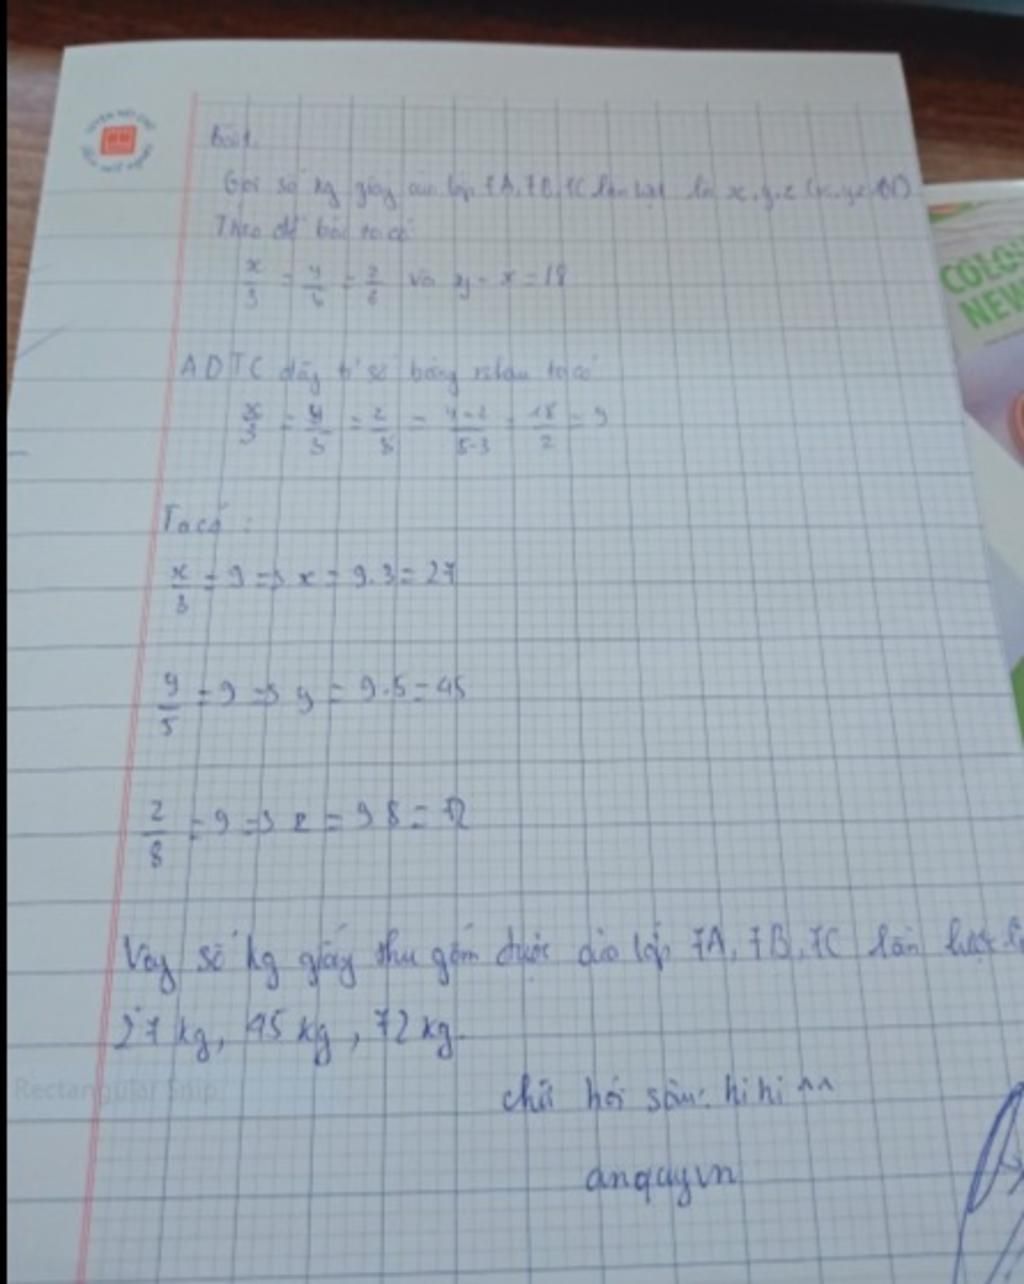 Bài 1.
Gọi số kg giấy của lớp 7A, 7B, 7C lần lượt là x, y, z
Theo đề bài ta có
x/3 = y/5 = z/8 và y - x = 18
ADTC dãy tỉ số bằng nhau ta có
x/3 = y/5 = z/8 = y-x/5-3 = 18/2 = 9
Ta có :
x/3 = 9 => x = 9.3 = 27
y/5 = 9 => y = 9.5 = 45
z/8 = 9 => z = 9 8 = 72
Vậy số kg giấy thu gom được của lớp 7A, 7B, 7C lần lượt là
27 kg, 45 kg, 72 kg.
Rectangular Snip
chữ hơi xấu: hi hi ^^
anquyvn
COLO
NEW